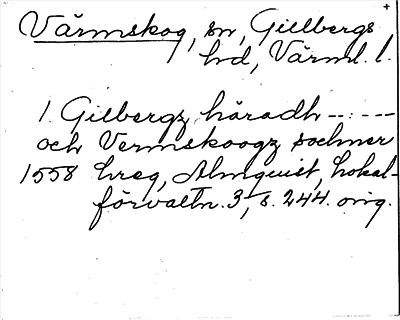 Värmskog, sn, Gillbergs
hd, Värml. l.
1 Gilbergz häradh --:---
och Vermskoogz sochner
1558 hreg, Almquist, Lokal-
förvaltn. 3, s. 244. orig.